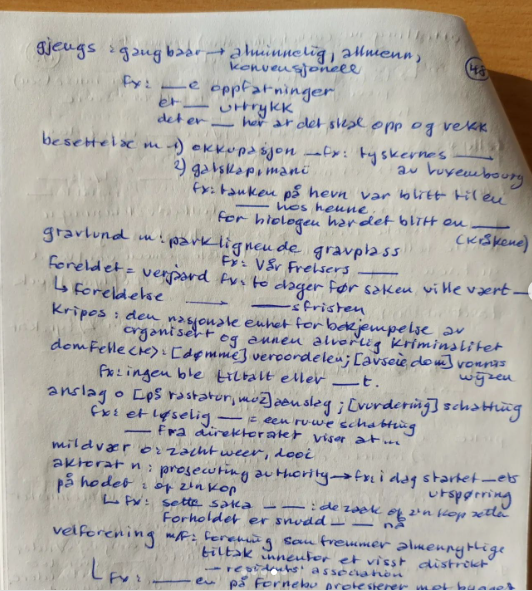 gjengs : gangbaar → alminnelig, allmenn,
konvensjonell
48
fx: __e oppfatninger
et __ uttrykk
det er __ her at det skal opp og vekk
besettelse m → 1) okkupasjon → fx: tyskernes ___
av Luxembourg
2) galskap, mani
fx: tanken på hevn var blitt til en
___ hos henne
for biologen har det blitt en ___
(kråkene)
gravlund m: parklignende gravplass
fx: Vår Frelsers ___
foreldet = verjaard fx: to dager før saken ville vært __
↳ foreldelse → ___sfristen
Kripos : den nasjonale enhet for bekjempelse av
organisert og annen alvorlig kriminalitet
domfelle <te>: [dømme] veroordelen; [avsi dom] vonnis
wijzen
fx: ingen ble tiltalt eller __t.
anslag o [på tastatur, muz] aanslag ; [vurdering] schatting
fx: et løselig __ = een ruwe schatting
__ fra direktoratet viser at ...
mildvær o: zacht weer, dooi
aktorat n: prosecuting authority → fx: i dag startet __ets
utspørring
på hodet : op z'n kop
↳ fx: sette saka __ __ : de zaak op z'n kop zetten
forholdet er snudd __ __ nå
velforening m/f: forening som fremmer almennyttige
tiltak innenfor et visst distrikt
– residents' association
↳ fx: ___en på Fornebu protesterer mot bygget